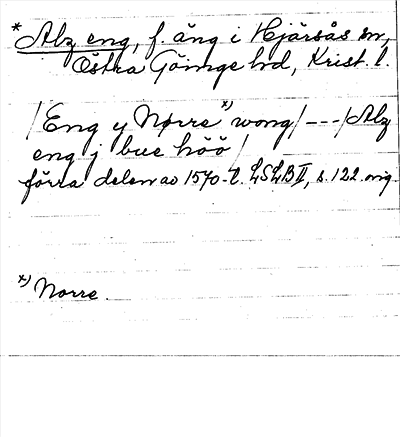 * Alz eng, f. äng i Hjärsås sn,
Östra Göinge hd, Krist. l.
/Eng y Nørre *) wong/ --- /Alz
eng j bue höö/
förra delen av 1570-t. LSLB II, s. 122. orig.
*) Norre